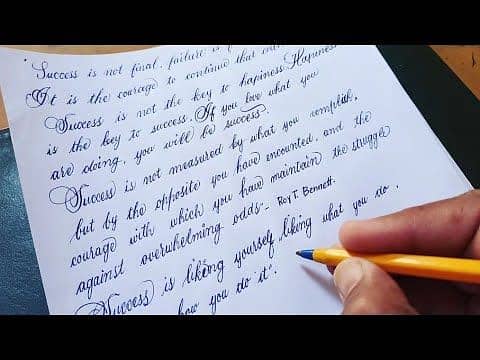 Success is not final, failure is
It is the courage to continue that
Success is not the key to hapiness. Hapiness
is the key to success. If you love what you
are doing, you will be success".
Success is not measured by what you complish,
but by the opposite you have encounted, and the
courage with which you have maintain the struggle
against overwhelming odds - Roy T. Bennett.
Success is liking yourself, liking what you do,
how you do it".